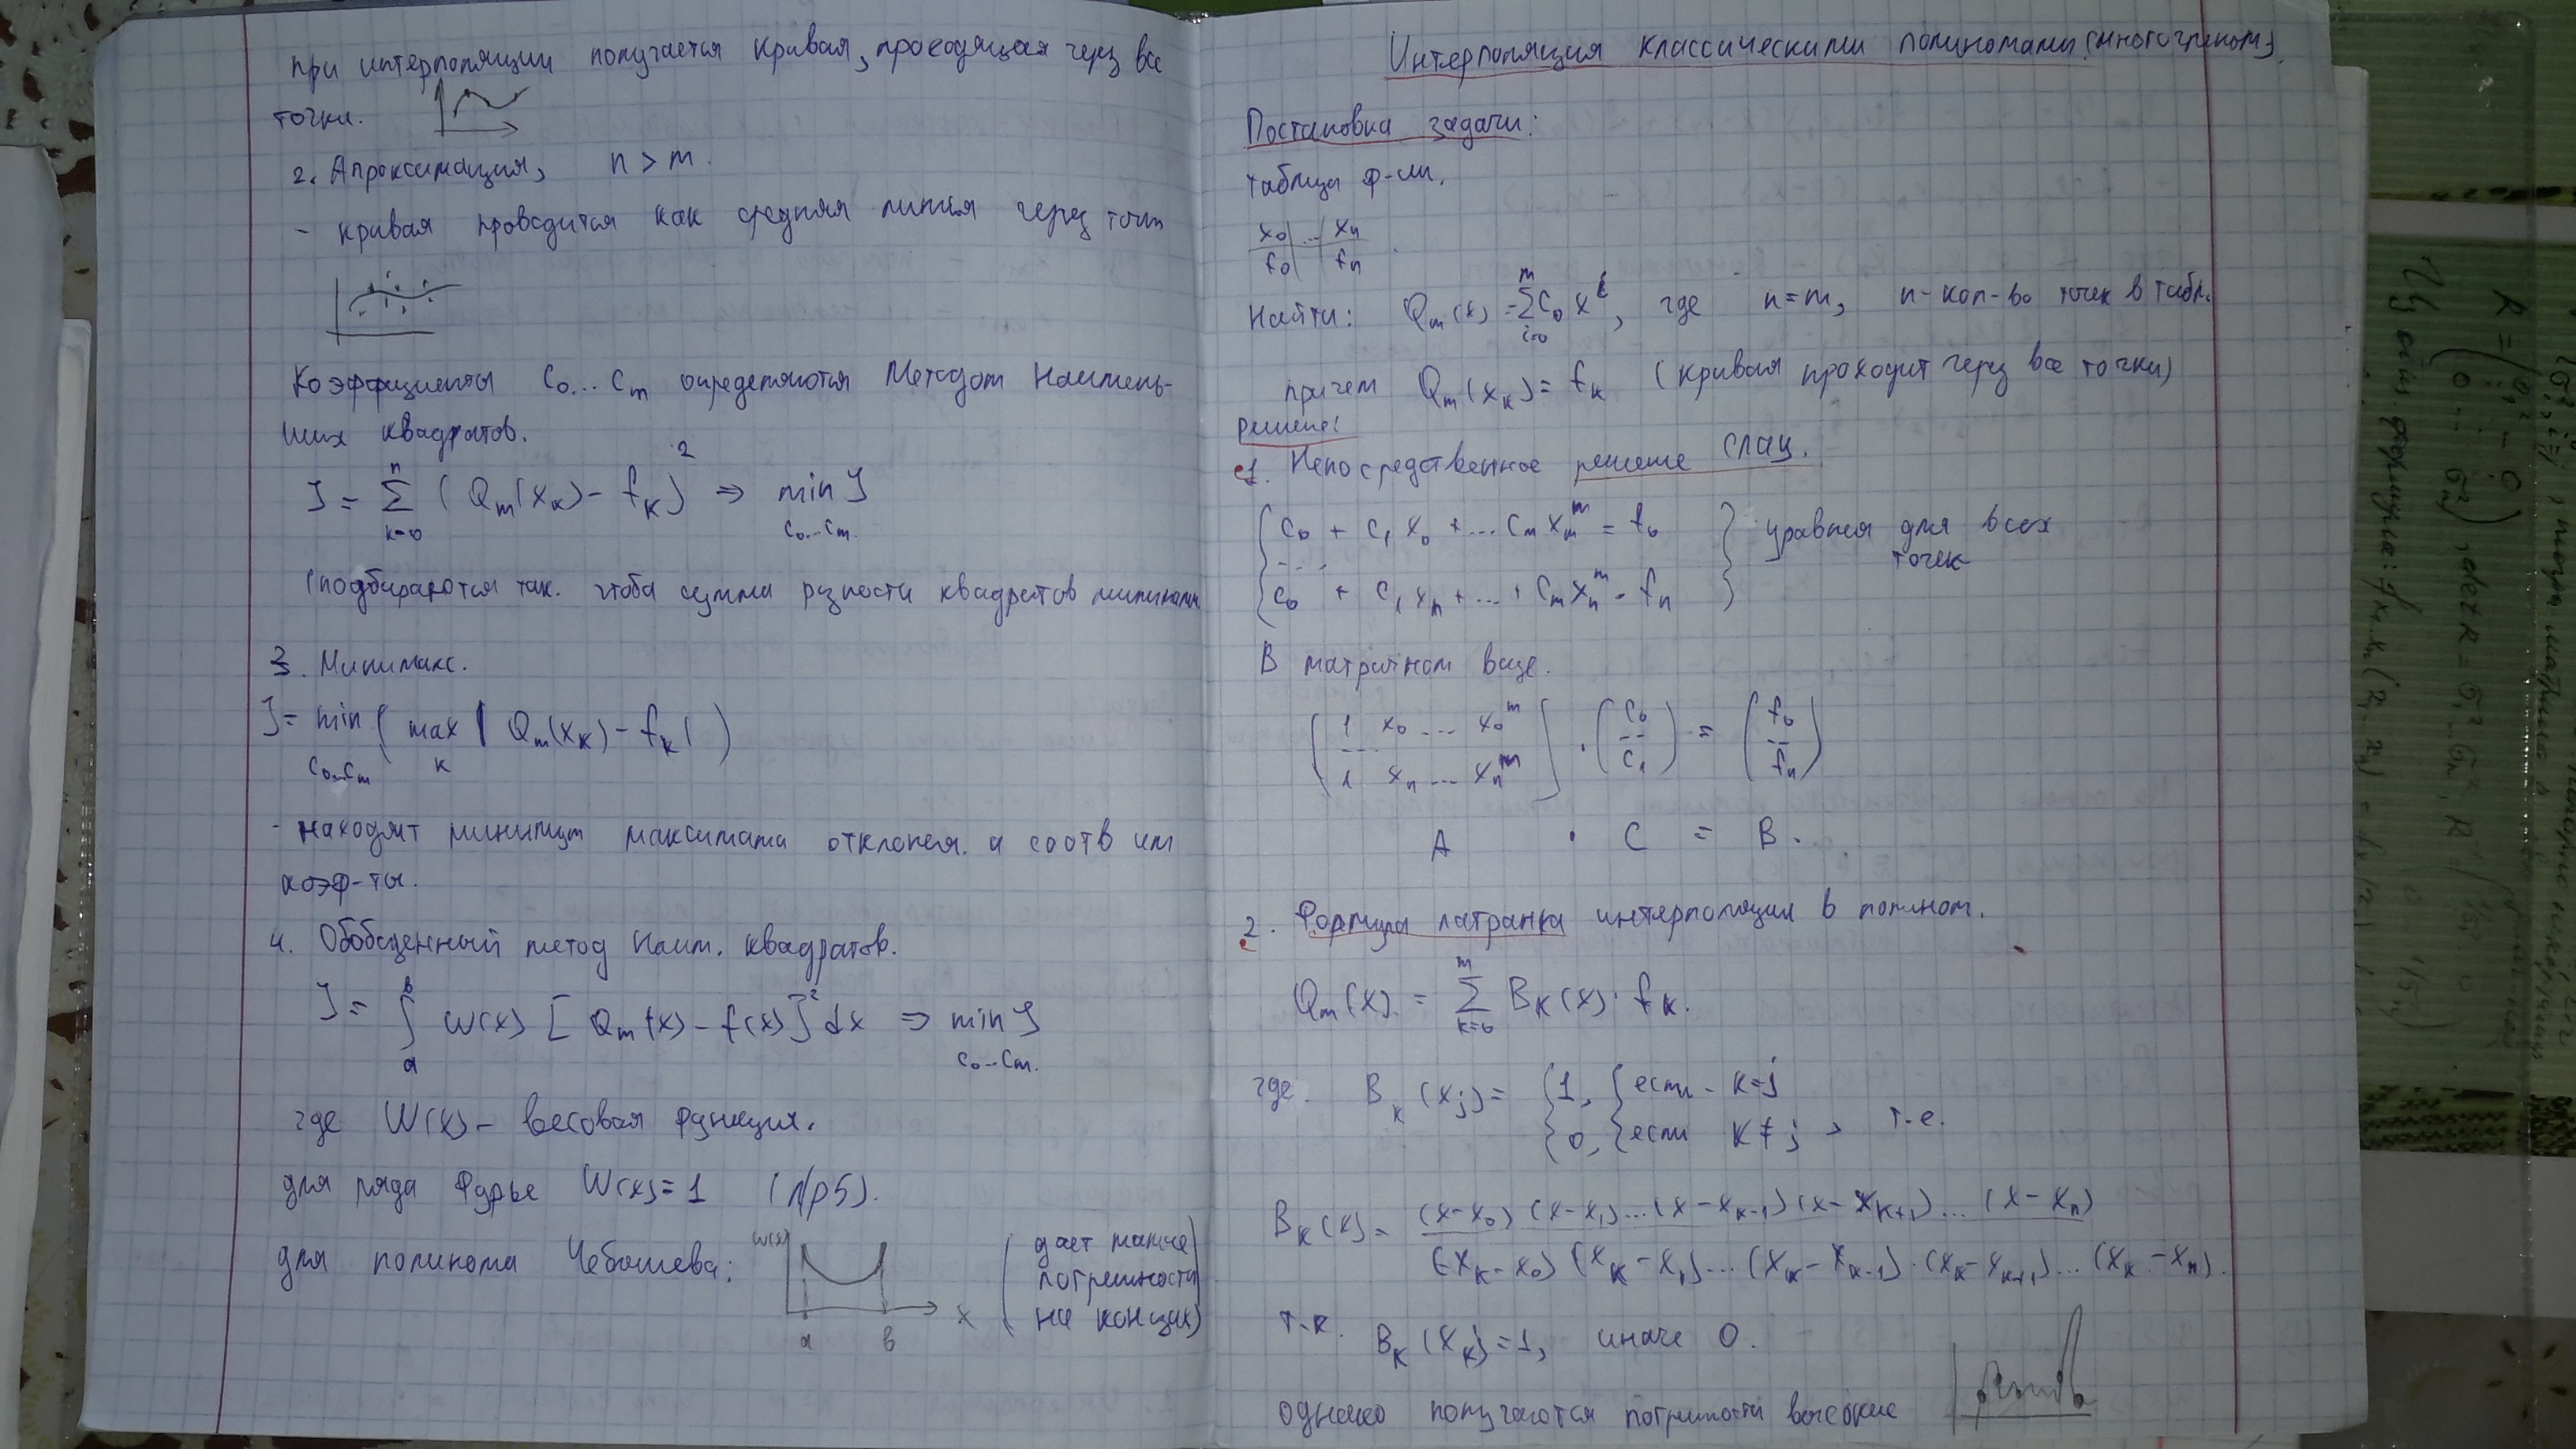 при интерполяции получается кривая, проходящая через все
точки.
2. Апроксимация, n > m.
- кривая проводится как средняя линия через точки
Коэффициенты C₀...Cₘ определяются Методом Наимень-
ших квадратов.
J = Σₖ₌₀ⁿ (Qₘ(xₖ) - fₖ)² ⇒ min J
C₀...Cₘ.
(подбираются так. чтобы сумма разности квадратов
3. Минимакс.
J = min ( max | Qₘ(xₖ) - fₖ | )
C₀...Cₘ k
- находят минимум максимала отклонен. а соотв им
коэф-ты.
4. Обобщенный метод наим. квадратов.
J = ∫ₐᵇ W(x) [Qₘ(x) - f(x)]² dx ⇒ min J
C₀...Cₘ.
где W(x) - весовая функция.
для ряда Фурье W(x) = 1
для полинома Чебышева:
W(x)
a b x
(дает малые
погрешности
на концах)
Интерполяция классическими полиномами (многочленом).
Постановка задачи:
таблица ф-ии.
x₀ ... xₙ
f₀ fₙ
Найти: Qₘ(x) = Σᵢ₌₀ᵐ C₀ xⁱ, где n = m, n - кол-во точек в табл.
причем Qₘ(xₖ) = fₖ (кривая проходит через все точки)
решение:
1. Непосредственное решение СЛАУ.
{ C₀ + C₁x₀ + ... Cₘxₘᵐ = f₀
...
{ C₀ + C₁xₙ + ... + Cₘxₙᵐ = fₙ
} уравнен для всех
точек
В матричном виде.
( 1 x₀ ... x₀ᵐ
...
1 xₙ ... xₙᵐ ) · ( C₀ ... C₁ ) = ( f₀ ... fₙ )
A · C = B.
2. Формула лагранжа интерполяции в полином.
Qₘ(x) = Σₖ₌₀ᵐ Bₖ(x) · fₖ.
где Bₖ(xⱼ) = { 1, если k=j
{ 0, если k ≠ j, т.е.
Bₖ(x) = (x-x₀)(x-x₁)...(x-xₖ₋₁)(x-xₖ₊₁)...(x-xₙ)
(xₖ-x₀)(xₖ-x₁)...(xₖ-xₖ₋₁)·(xₖ-xₖ₊₁)...(xₖ-xₙ).
т-к. Bₖ(xₖ) = 1, иначе 0.
однако получаются погрешности